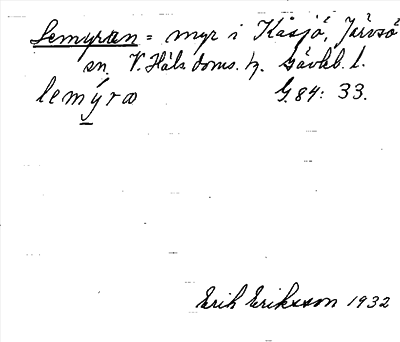 Lemyran = myr i Kåsjö, Järvsö
sn. V. Häls. doms. h. Gävleb. l.
lemy̆ra G. 84: 33.
Erik Eriksson 1932